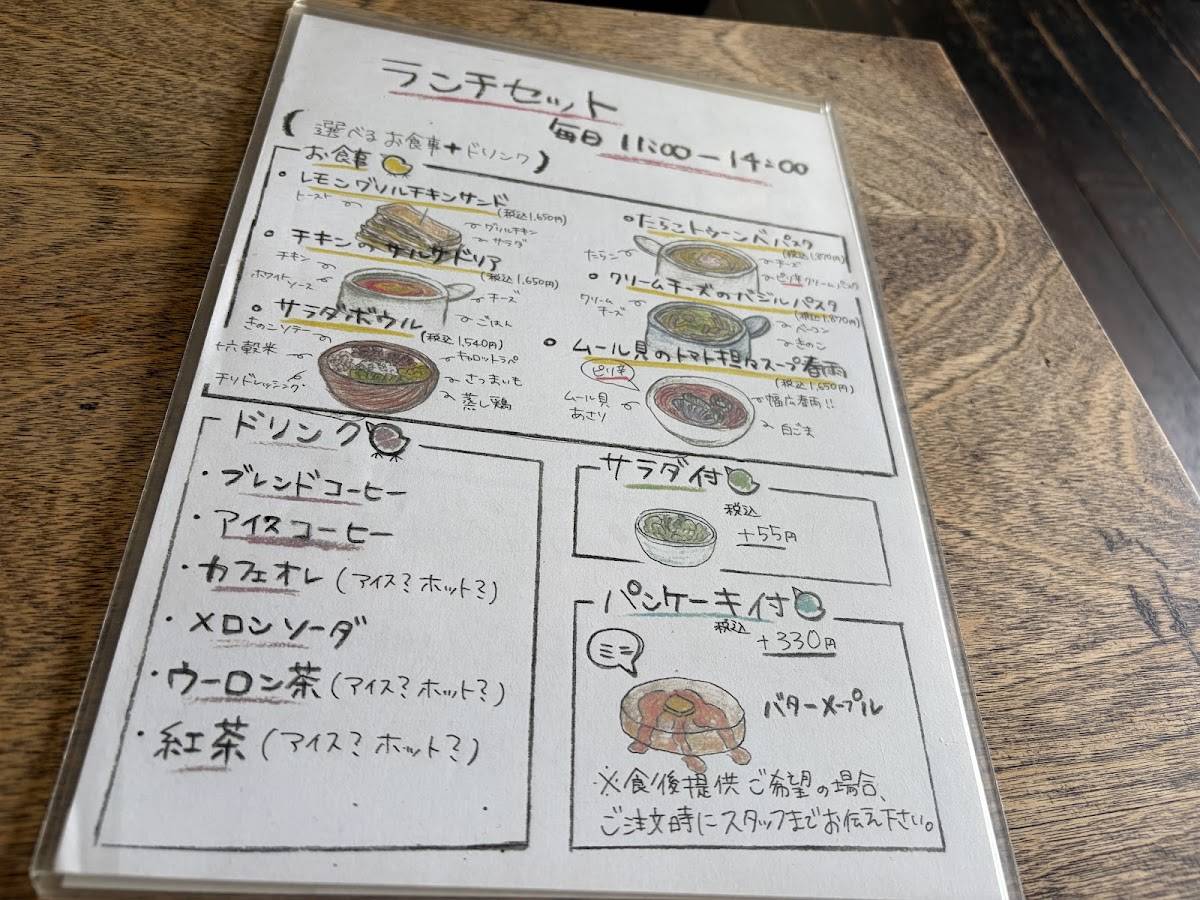 ランチセット
毎日 11:00-14:00
(選べるお食事+ドリンク)
お食事
・レモングリルチキンサンド
(税込1,650円)
トースト
グリルチキン
サラダ
・チキンのサルサドリア
(税込1,650円)
チキン
ホワイトソース
チーズ
ごはん
・サラダボウル
(税込1,540円)
きのこソテー
十六穀米
チリドレッシング
キャロットラペ
さつまいも
蒸し鶏
・たらこトゥーンバパスタ
(税込1,870円)
たらこ
チーズ
ピリ辛クリームパスタ
・クリームチーズのバジルパスタ
(税込1,870円)
クリーム
チーズ
ベーコン
きのこ
・ムール貝のトマト担々スープ春雨
(税込1,650円)
ピリ辛
ムール貝
あさり
幅広春雨!!
白ごま
ドリンク
・ブレンドコーヒー
・アイスコーヒー
・カフェオレ(アイス?ホット?)
・メロンソーダ
・ウーロン茶(アイス?ホット?)
・紅茶(アイス?ホット?)
サラダ付
税込
+55円
パンケーキ付
税込
+330円
ミニ
バターメープル
※食後提供ご希望の場合、
ご注文時にスタッフまでお伝え下さい。